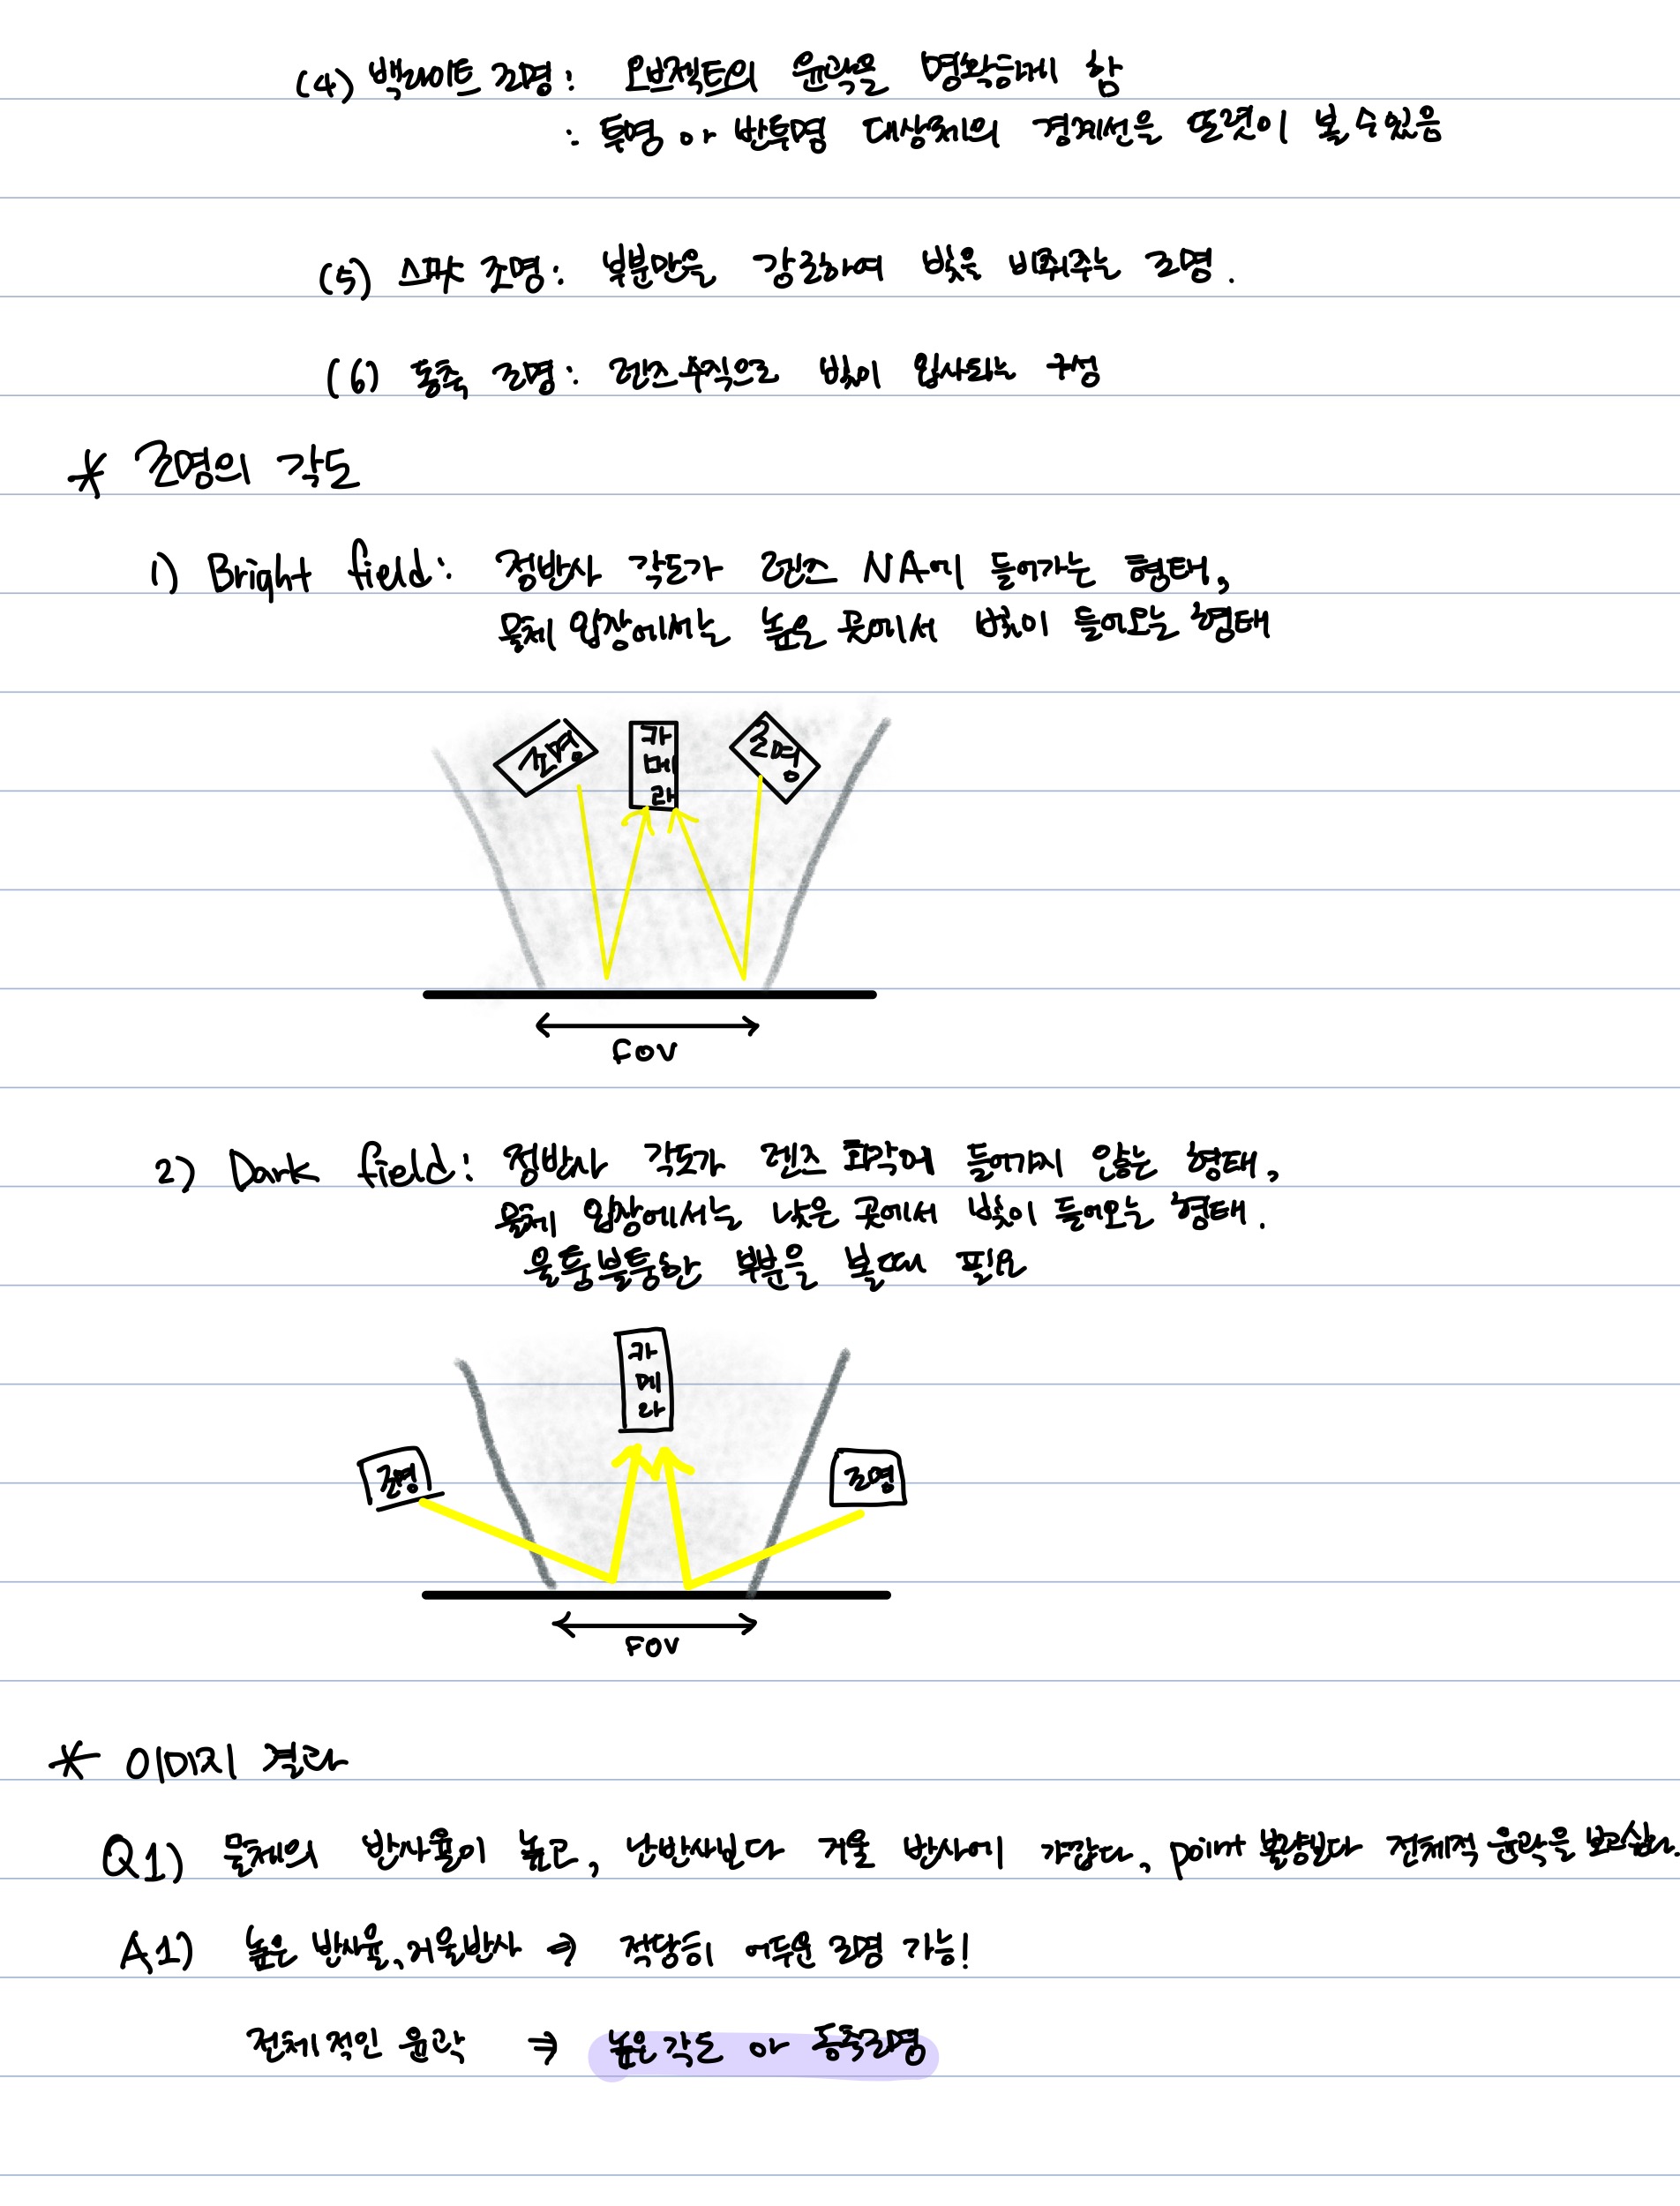 (4) 백라이트 조명 : 오브젝트의 윤곽을 명확하게 함
: 투명 or 반투명 대상체의 경계선을 또렷이 볼 수 있음
(5) 스팟 조명 : 부분만을 강조하여 빛을 비춰주는 조명.
(6) 동축 조명 : 렌즈수직으로 빛이 입사되는 구성
* 조명의 각도
1) Bright field : 정반사 각도가 렌즈 NA에 들어가는 형태,
물체 입장에서는 높은 곳에서 빛이 들어오는 형태
조명
카메라
조명
FOV
2) Dark field : 정반사 각도가 렌즈 화각에 들어가지 않는 형태,
물체 입장에서는 낮은 곳에서 빛이 들어오는 형태.
울퉁불퉁한 부분을 볼때 필요
카메라
조명
조명
FOV
* 이미지 결과
Q1) 물체의 반사율이 높고, 난반사보다 거울 반사에 가깝다, point 불량보다 전체적 윤곽을 보고싶다.
A1) 높은 반사율, 거울반사 ⇒ 적당히 어두운 조명 가능!
전체적인 윤곽 ⇒ 높은각도 or 동축조명